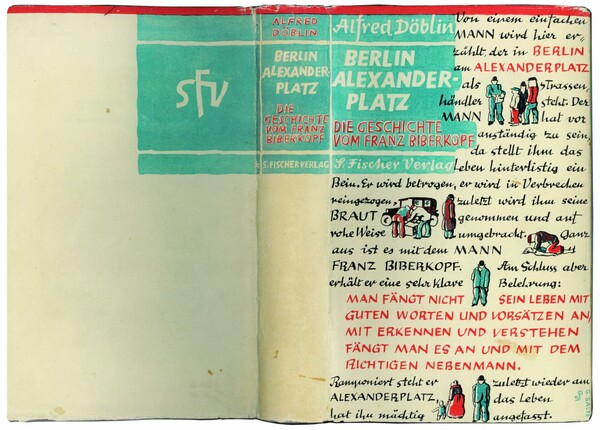 SFV
ALFRED
DÖBLIN
BERLIN
ALEXANDER-
PLATZ
DIE
GESCHICHTE
VOM FRANZ
BIBERKOPF
S. FISCHER VERLAG
Alfred Döblin
BERLIN
ALEXANDER-
PLATZ
DIE GESCHICHTE
VOM FRANZ BIBERKOPF
S. Fischer Verlag
Von einem einfachen
MANN wird hier er-
zählt, der in BERLIN
am ALEXANDERPLATZ
als Strassen-
händler steht. Der
MANN hat vor
anständig zu sein,
da stellt ihm das
Leben hinterlistig ein
Bein. Er wird betrogen, er wird in Verbrechen
reingezogen, zuletzt wird ihm seine
BRAUT genommen und auf
rohe Weise umgebracht. Ganz
aus ist es mit dem MANN
FRANZ BIBERKOPF. Am Schluss aber
erhält er eine sehr klare Belehrung:
MAN FÄNGT NICHT SEIN LEBEN MIT
GUTEN WORTEN UND VORSÄTZEN AN,
MIT ERKENNEN UND VERSTEHEN
FÄNGT MAN ES AN UND MIT DEM
RICHTIGEN NEBENMANN.
Ramponiert steht er zuletzt wieder am
ALEXANDERPLATZ, das Leben
hat ihn mächtig angefasst.